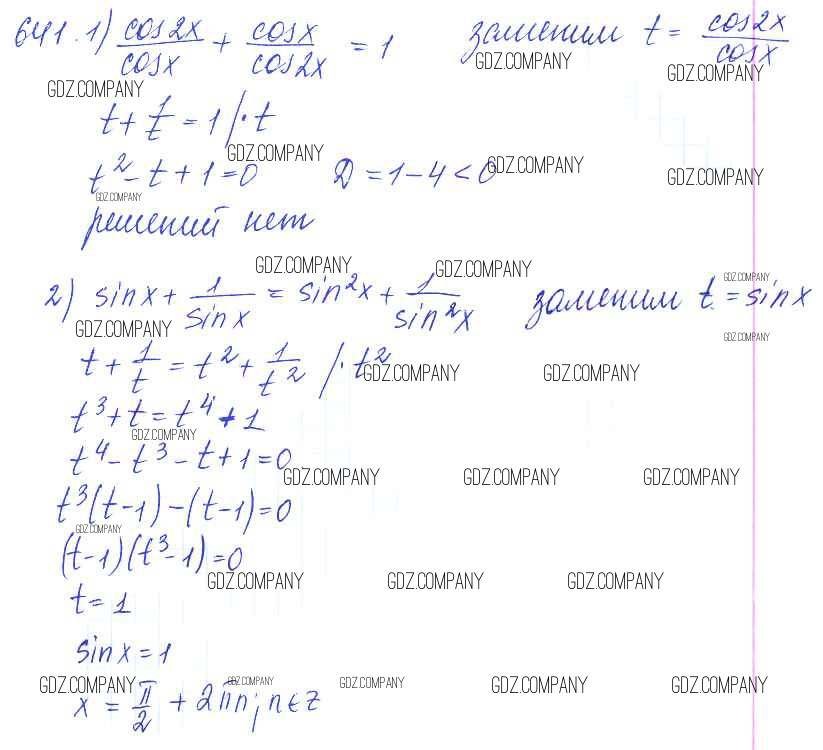 641. 1) cos2x/cosx + cosx/cos2x = 1 заменим t = cos2x/cosx
GDZ.COMPANY GDZ.COMPANY GDZ.COMPANY
t + 1/t = 1 /· t
GDZ.COMPANY
t² - t + 1 = 0 D = 1 - 4 < 0
GDZ.COMPANY GDZ.COMPANY GDZ.COMPANY
решений нет
GDZ.COMPANY GDZ.COMPANY GDZ.COMPANY
2) sinx + 1/sinx = sin²x + 1/sin²x заменим t = sinx
GDZ.COMPANY GDZ.COMPANY
t + 1/t = t² + 1/t² /· t²
GDZ.COMPANY GDZ.COMPANY
t³ + t = t⁴ + 1
GDZ.COMPANY
t⁴ - t³ - t + 1 = 0
GDZ.COMPANY GDZ.COMPANY GDZ.COMPANY
t³(t-1) - (t-1) = 0
GDZ.COMPANY
(t-1)(t³-1) = 0
GDZ.COMPANY GDZ.COMPANY GDZ.COMPANY
t = 1
sinx = 1
GDZ.COMPANY GDZ.COMPANY GDZ.COMPANY GDZ.COMPANY GDZ.COMPANY
x = π/2 + 2πn; n∈z